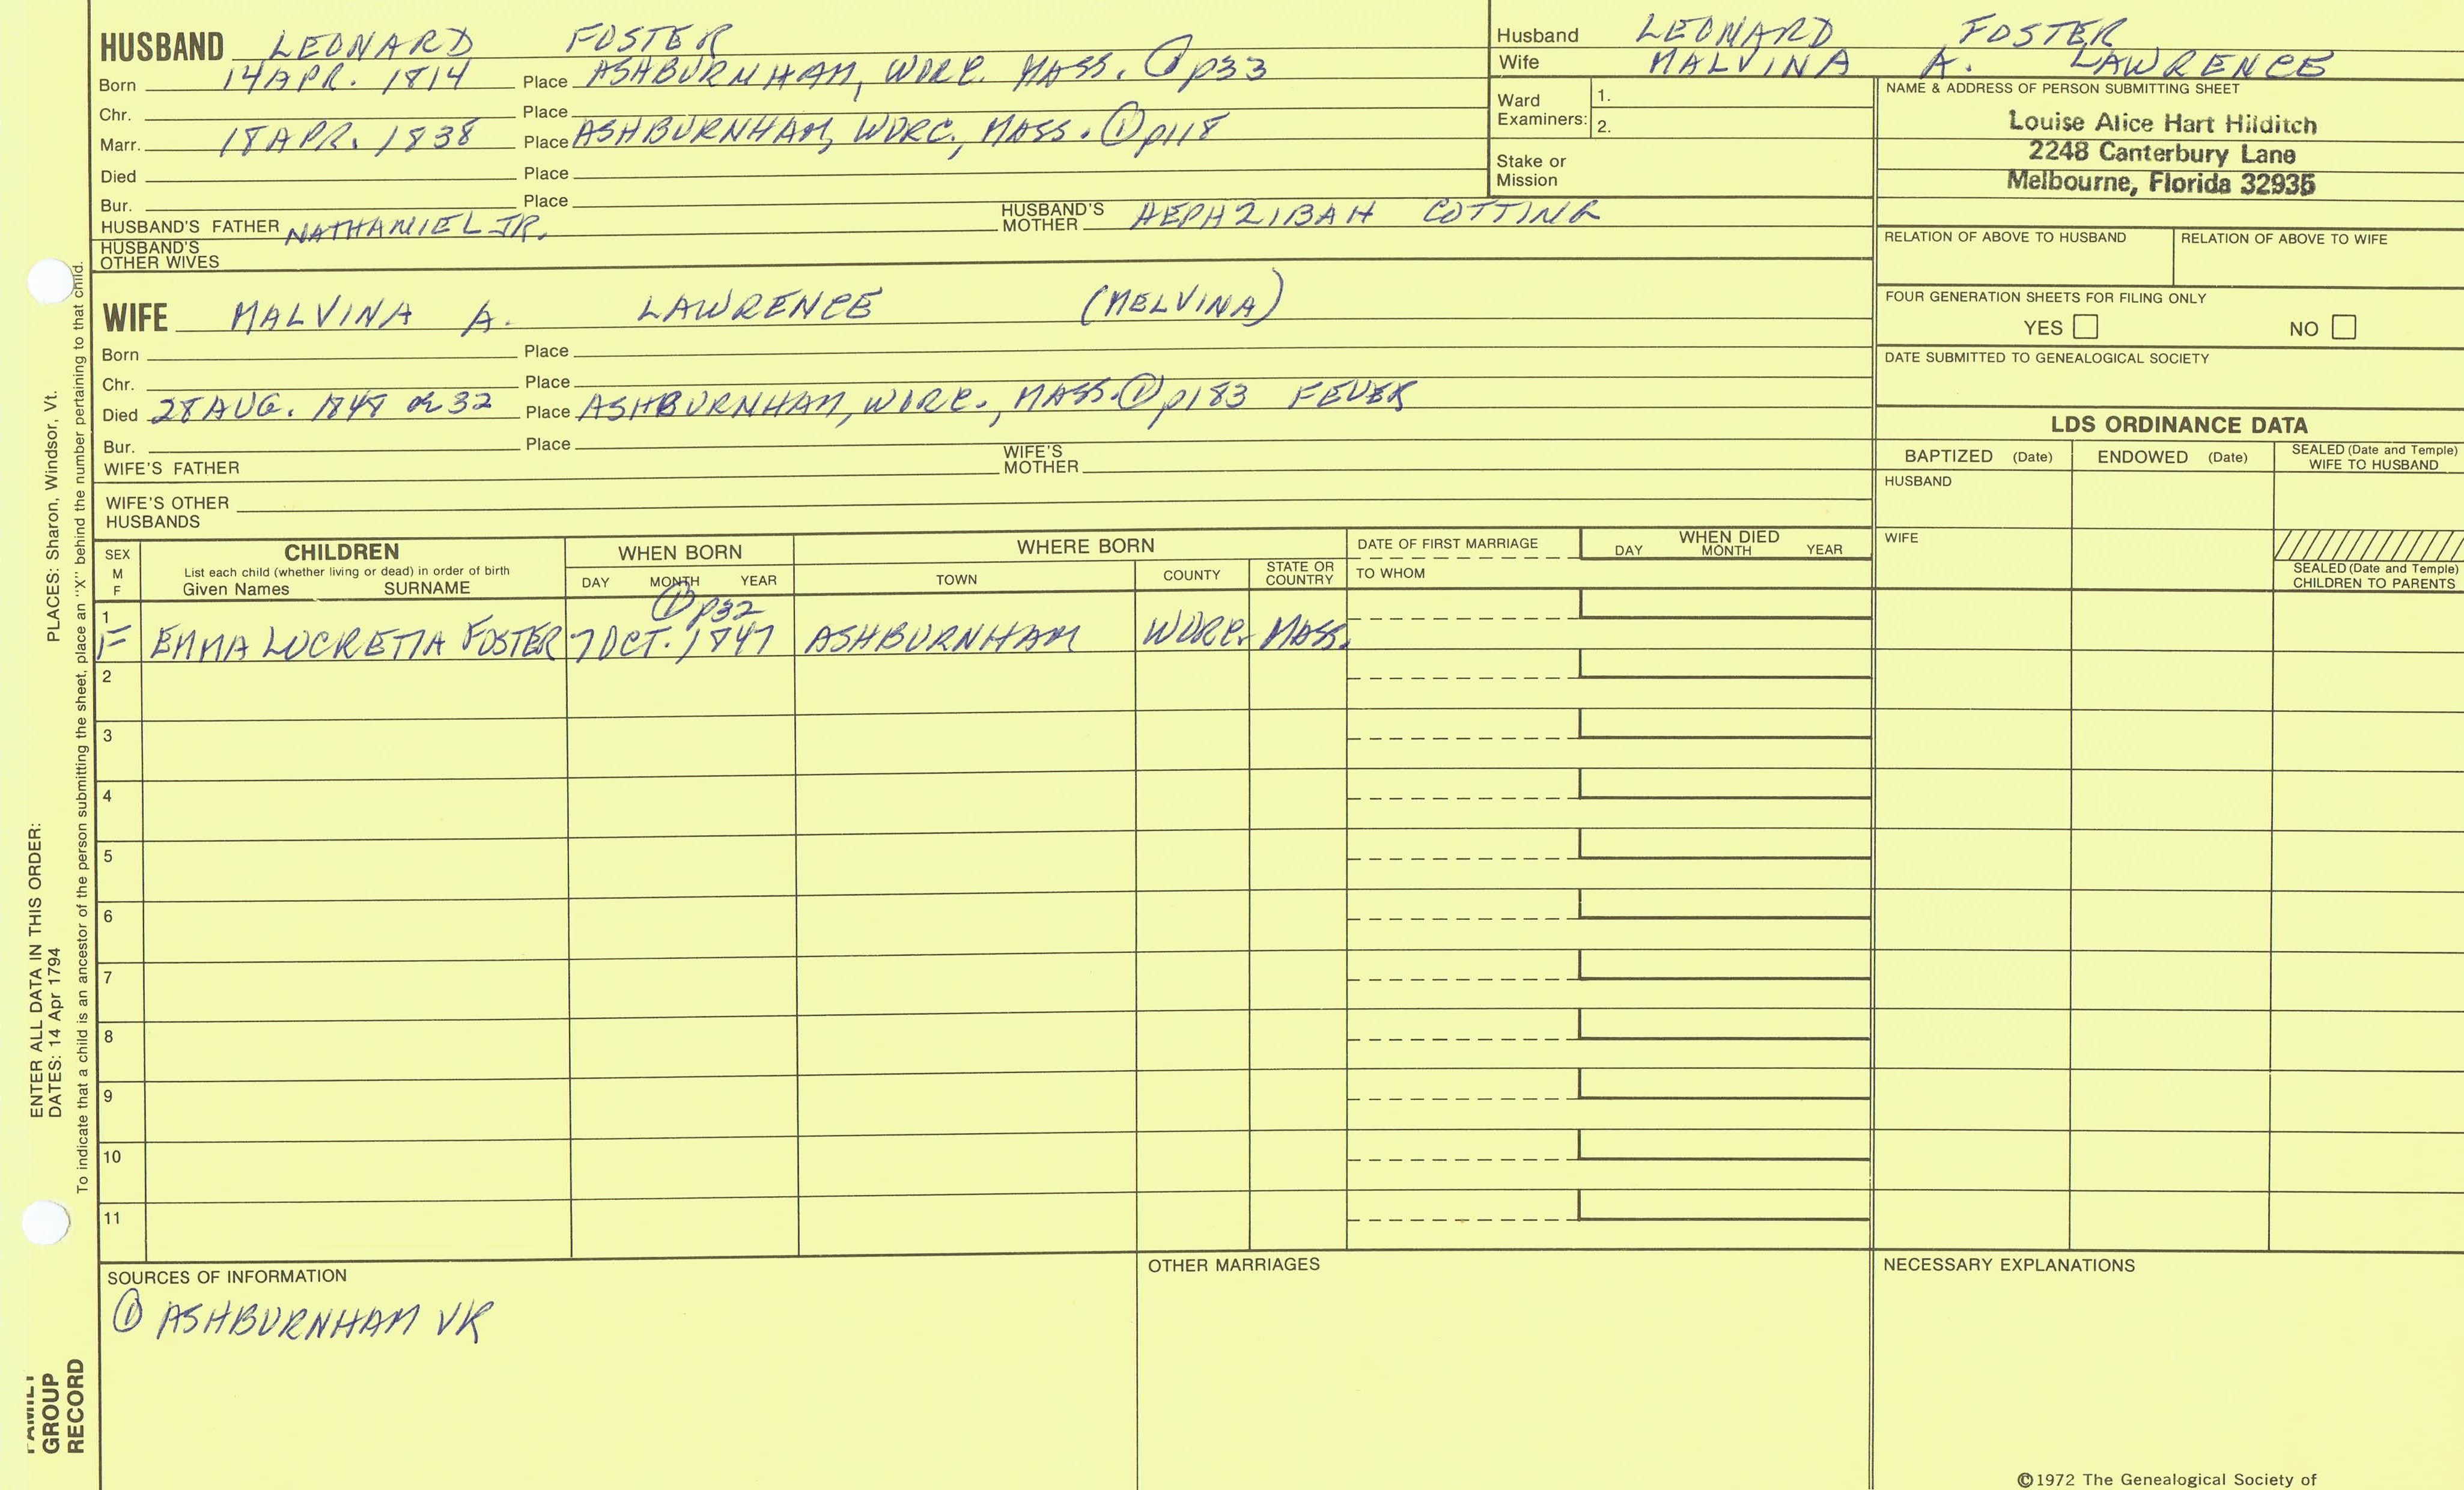 HUSBAND LEONARD FOSTER
Born 14 APR. 1814 Place ASHBURNHAM, WORC. MASS. ① p33
Chr. Place
Marr. 18 APR. 1838 Place ASHBURNHAM, WORC., MASS. ① p118
Died Place
Bur. Place
HUSBAND'S FATHER NATHANIEL JR. HUSBAND'S MOTHER HEPHZIBAH COTTING
HUSBAND'S OTHER WIVES
WIFE MALVINA A. LAWRENCE (MELVINA)
Born Place
Chr. Place
Died 28 AUG. 1848 ae 32 Place ASHBURNHAM, WORC., MASS. ① p183 FEVER
Bur. Place
WIFE'S FATHER WIFE'S MOTHER
WIFE'S OTHER HUSBANDS
Husband LEONARD FOSTER
Wife MALVINA A. LAWRENCE
Ward Examiners: 1.
2.
Stake or Mission
NAME & ADDRESS OF PERSON SUBMITTING SHEET
Louise Alice Hart Hilditch
2248 Canterbury Lane
Melbourne, Florida 32935
RELATION OF ABOVE TO HUSBAND RELATION OF ABOVE TO WIFE
FOUR GENERATION SHEETS FOR FILING ONLY
YES NO
DATE SUBMITTED TO GENEALOGICAL SOCIETY
LDS ORDINANCE DATA
BAPTIZED (Date) ENDOWED (Date) SEALED (Date and Temple) WIFE TO HUSBAND
HUSBAND
WIFE
SEALED (Date and Temple) CHILDREN TO PARENTS
SEX M F
CHILDREN
List each child (whether living or dead) in order of birth
Given Names SURNAME
WHEN BORN
DAY MONTH YEAR
WHERE BORN
TOWN COUNTY STATE OR COUNTRY
DATE OF FIRST MARRIAGE
TO WHOM
WHEN DIED
DAY MONTH YEAR
① p32
1 F EMMA LUCRETIA FOSTER 7 OCT. 1847 ASHBURNHAM WORC. MASS.
2
3
4
5
6
7
8
9
10
11
SOURCES OF INFORMATION
① ASHBURNHAM VR
OTHER MARRIAGES
NECESSARY EXPLANATIONS
©1972 The Genealogical Society of
ENTER ALL DATA IN THIS ORDER:
DATES: 14 Apr 1794 PLACES: Sharon, Windsor, Vt.
To indicate that a child is an ancestor of the person submitting the sheet, place an "X" behind the number pertaining to that child.
FAMILY
GROUP
RECORD